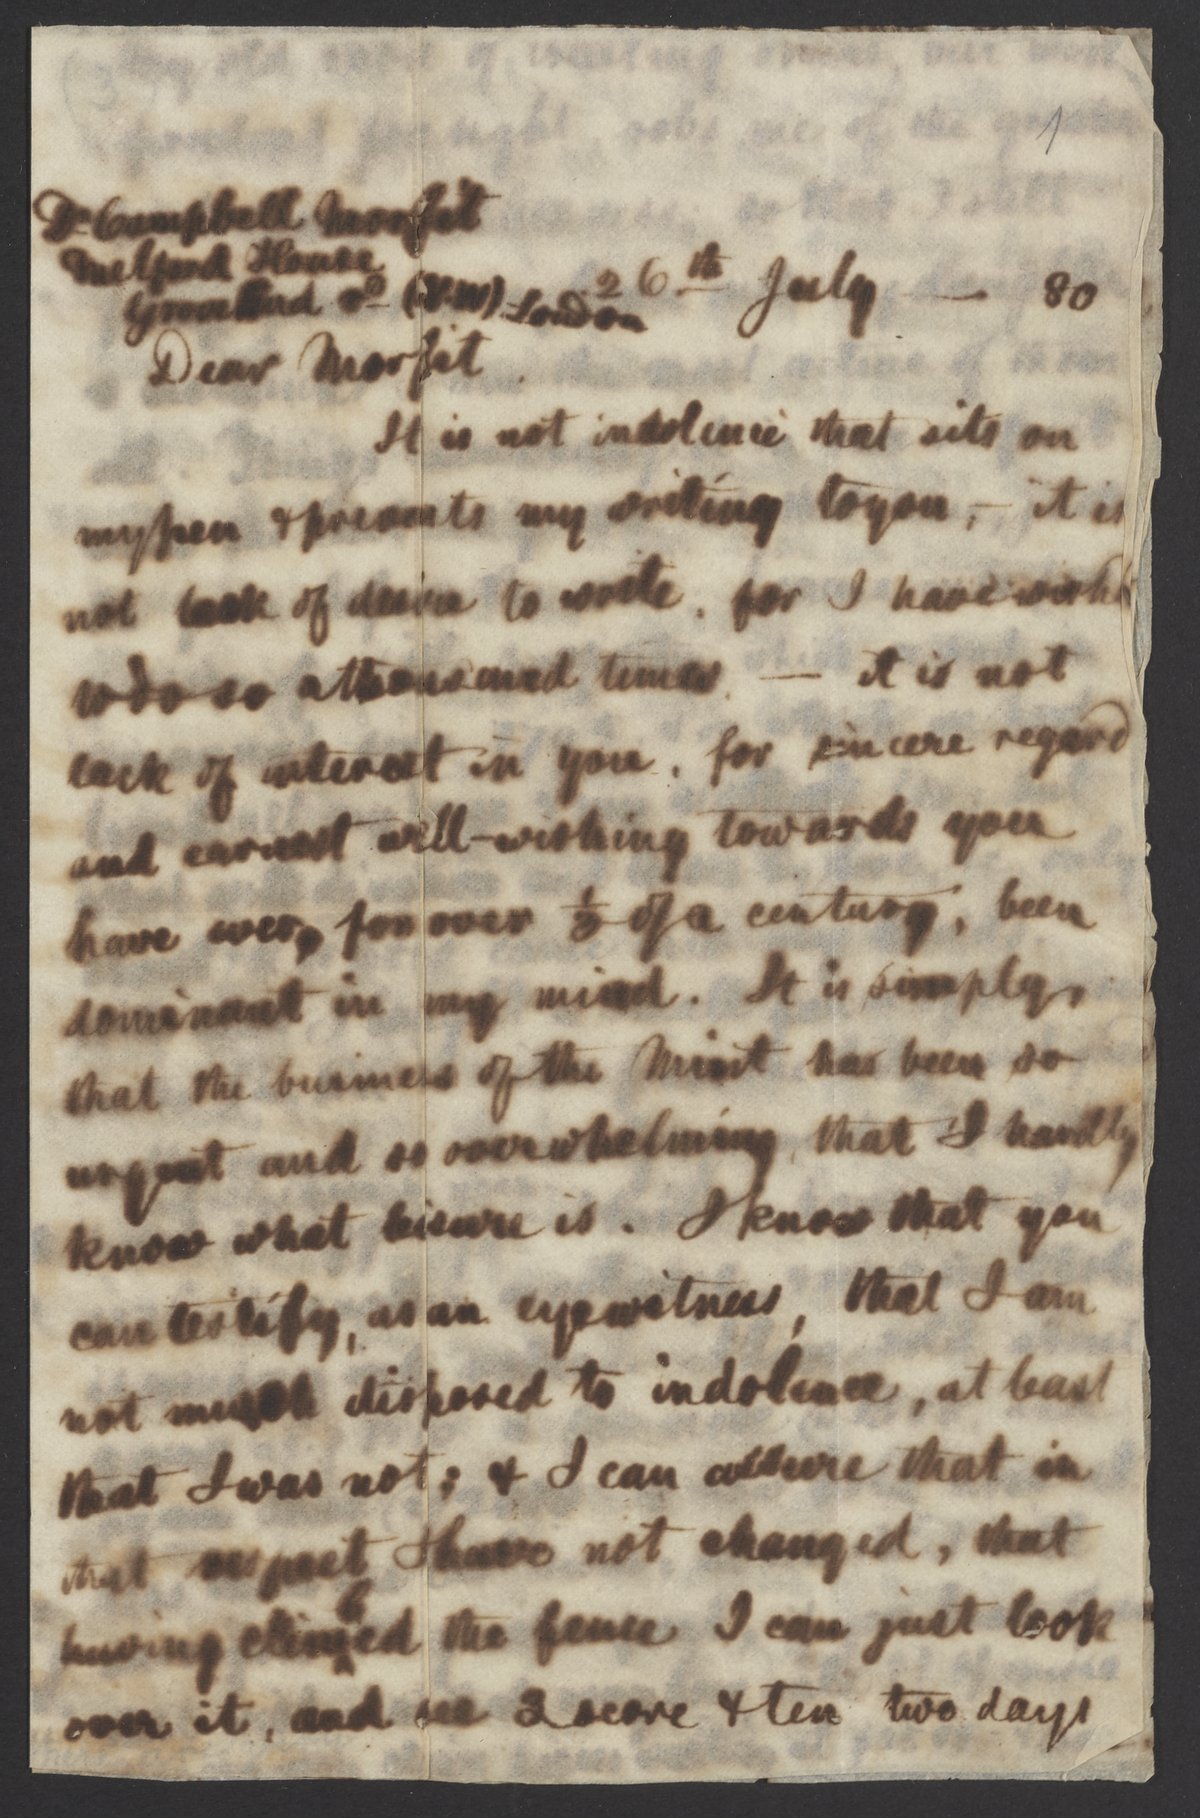 1
Dr Campbell Morfit
Melford House
(N.W) London
26th July — 80
Dear Morfit.
It is not indolence that sits on
my pen & prevents my writing to you, — it is
not lack of desire to write, for I have wishd
to do so a thousand times. — it is not
lack of interest in you, for sincere regard
and earnest well-wishing towards you
have ever, for over 1/3 of a century, been
dominant in my mind. It is simply,
that the business of the Mint has been so
urgent and so overwhelming, that I hardly
know what leisure is. I know that you
can testify, as an eyewitness, that I am
not much disposed to indolence, at least
that I was not; & I can assure that in
that respect I have not changed, that
having climbed the fence I can just look
over it, and see 3 score & ten two days